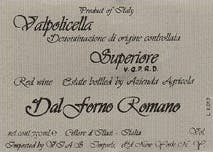 Product of Italy
Valpolicella
Denominazione di origine controllata
Superiore
V.Q.P.R.D.
Red wine Estate bottled by Azienda Agricola
Dal Forno Romano
net.cont. 750ml Cellore d'Illasi Italia Vol.
Imported by V.I.A.S. Imports, Ltd New York N.Y.